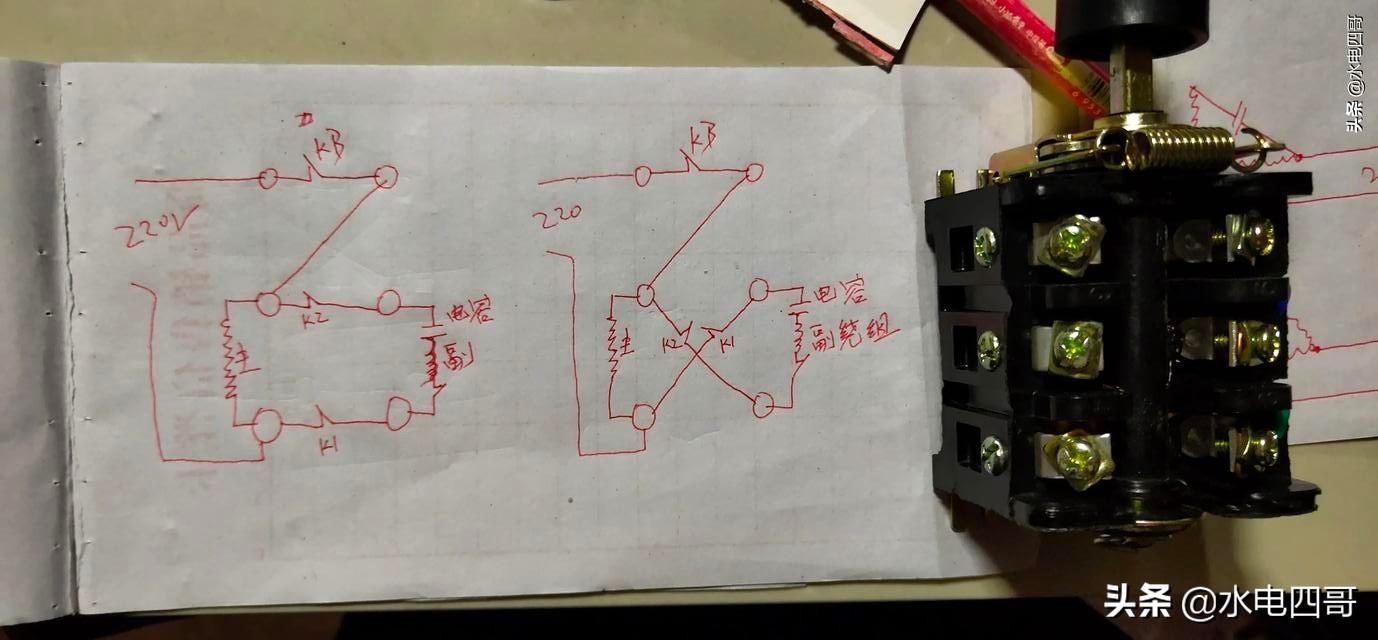 KB
220V
K2
电容
主
副
K1
KB
220
电容
主
K2
K1
副绕组
头条 @水电四哥
头条 @水电四哥